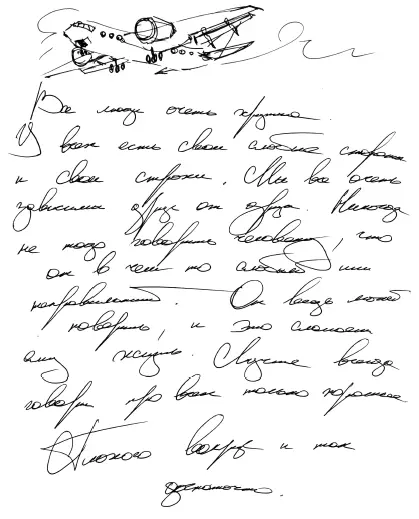 Все люди очень хрупки.
У всех есть свои слабые стороны
и свои страхи. Мы все очень
зависимы друг от друга. Никогда
не надо говорить человеку, что
он в чем то слабый или
неправильный. Он везде может
поверить, и это сломает
ему жизнь. Лучше всегда
говори про всех только хорошее
Плохого вокруг и так
достаточно.